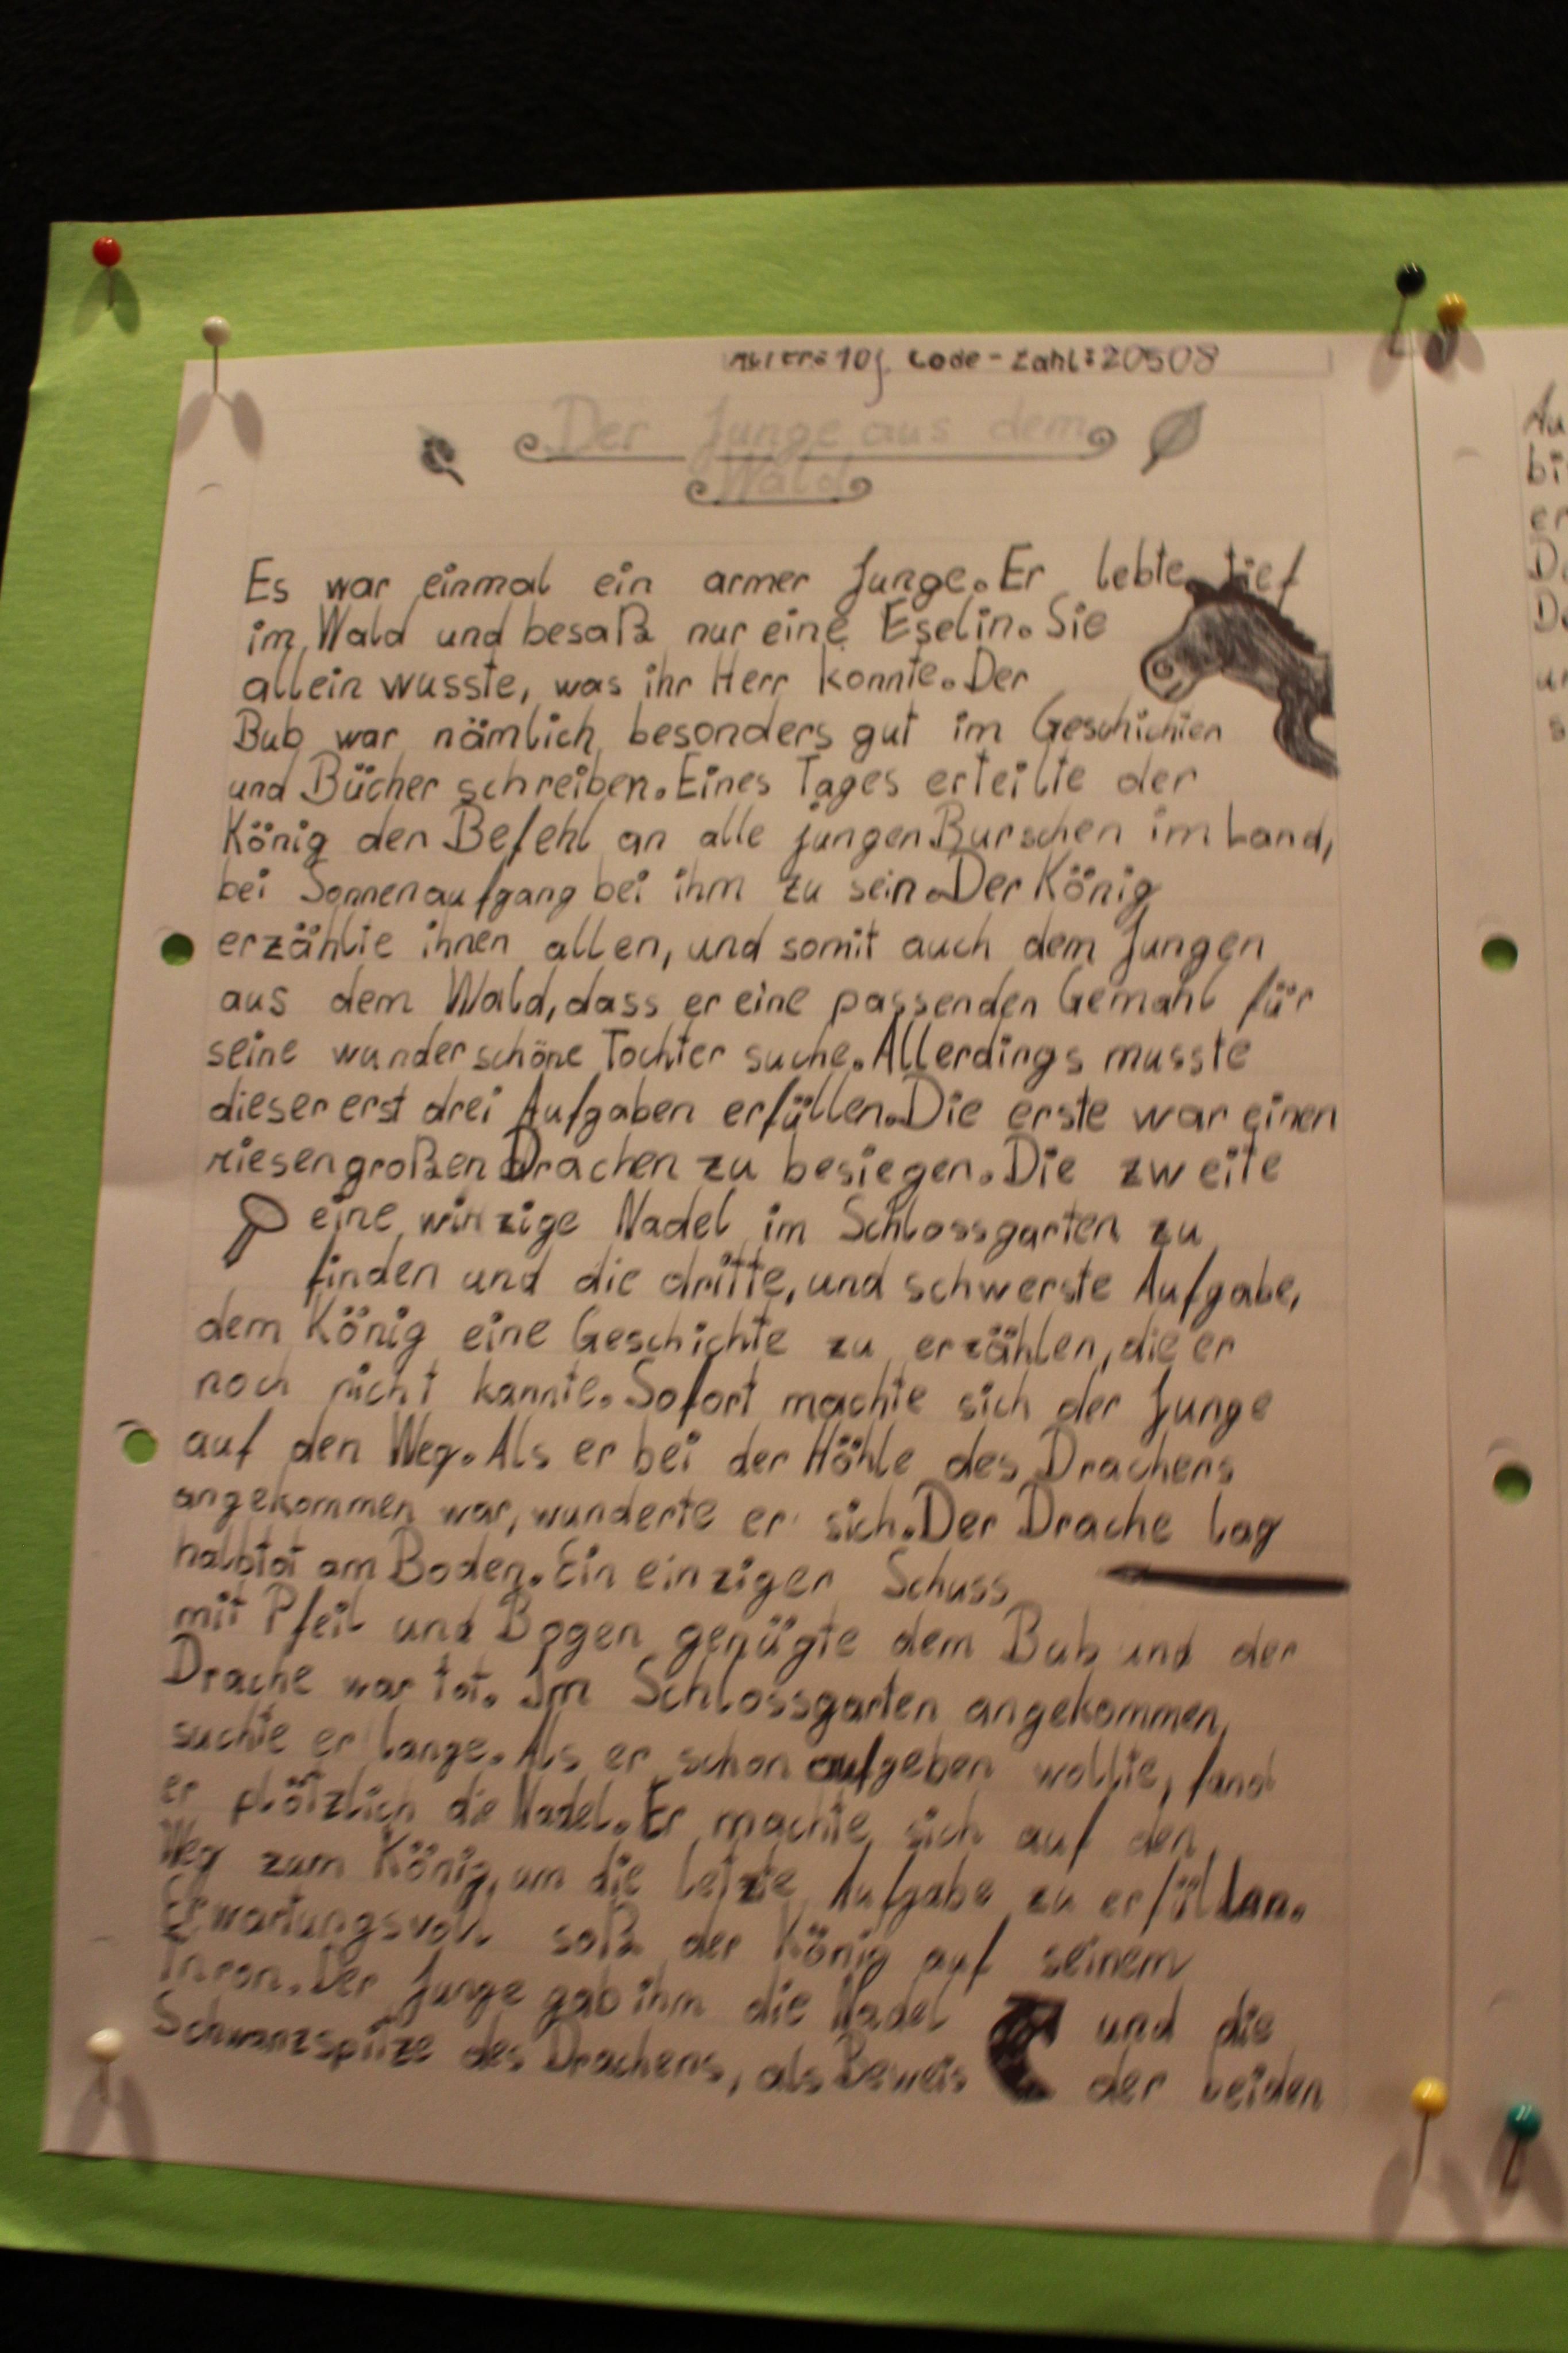 Alter: 10j. Code-Zahl: 20508
Der Junge aus dem
Wald
Es war einmal ein armer Junge. Er lebte tief
im Wald und besaß nur eine Eselin. Sie
allein wusste, was ihr Herr konnte. Der
Bub war nämlich besonders gut im Geschichten
und Bücher schreiben. Eines Tages erteilte der
König den Befehl an alle jungen Burschen im Land,
bei Sonnenaufgang bei ihm zu sein. Der König
erzählte ihnen allen, und somit auch dem Jungen
aus dem Wald, dass er eine passenden Gemahl für
seine wunderschöne Tochter suche. Allerdings musste
dieser erst drei Aufgaben erfüllen. Die erste war einen
riesengroßen Drachen zu besiegen. Die zweite
eine winzige Nadel im Schlossgarten zu
finden und die dritte, und schwerste Aufgabe,
dem König eine Geschichte zu erzählen, die er
noch nicht kannte. Sofort machte sich der Junge
auf den Weg. Als er bei der Höhle des Drachens
angekommen war, wunderte er sich. Der Drache lag
halbtot am Boden. Ein einziger Schuss
mit Pfeil und Bogen genügte dem Bub und der
Drache war tot. Im Schlossgarten angekommen,
suchte er lange. Als er schon aufgeben wollte, fand
er plötzlich die Nadel. Er machte sich auf den
Weg zum König, um die letzte Aufgabe zu erfüllan.
Erwartungsvoll saß der König auf seinem
Thron. Der Junge gab ihm die Nadel und die
Schwanzspitze des Drachens, als Beweis der beiden
Au
bi
er
D
D
un
s